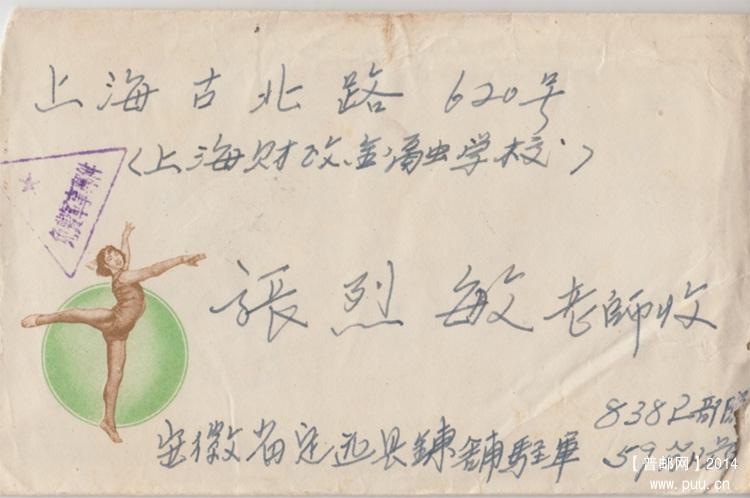 上海古北路 620号
(上海财政金融学校)
免費軍事郵件
張烈敏老師收
8382部隊
安徽省定远县鍊舖駐軍
【普邮网】2014
www.puu.cn